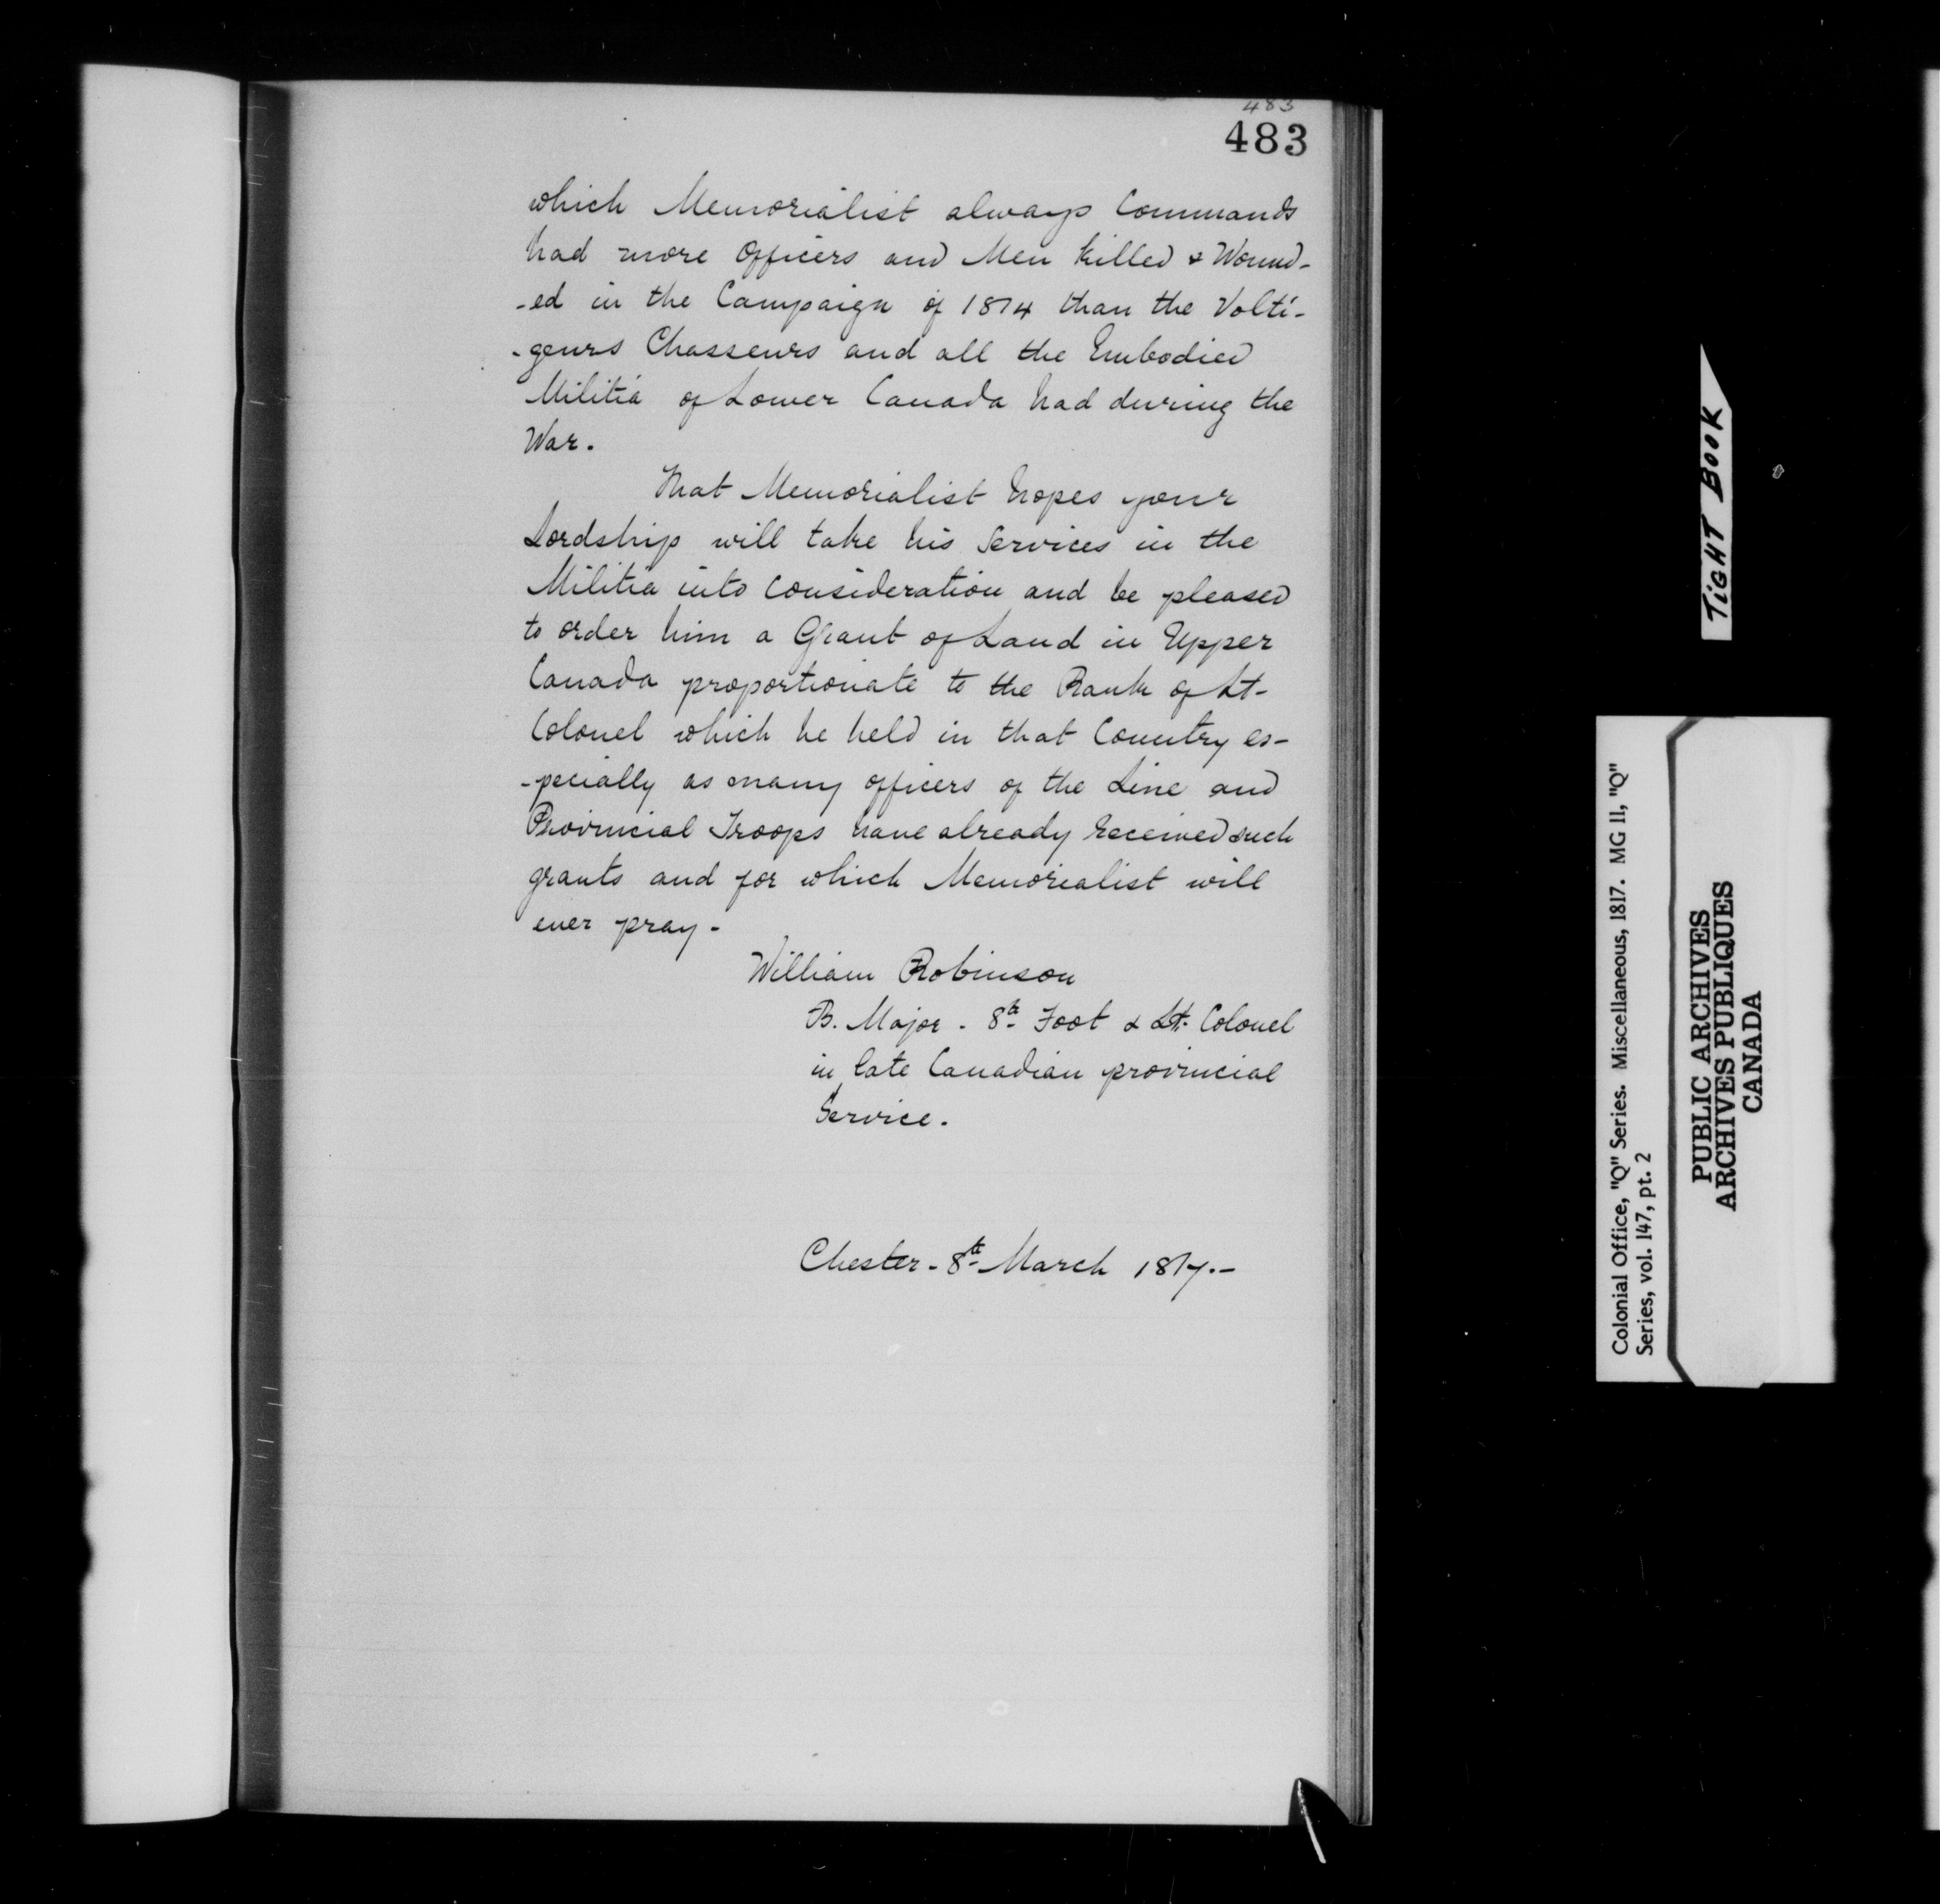 483
483
which Memorialist always Commands
had more Officers and Men killed & Wound-
-ed in the Campaign of 1814 than the Volti-
-geurs Chasseurs and all the Embodied
Militia of Lower Canada had during the
War.
That Memorialist hopes your
Lordship will take his Services in the
Militia into Consideration and be pleased
to order him a Grant of Land in Upper
Canada proportionate to the Rank of Lt-
Colonel which he held in that Country es-
-pecially as many officers of the Line and
Provincial Troops have already received such
grants and for which Memorialist will
ever pray-
William Robinson
B. Major - 8th Foot & Lt. Colonel
in late Canadian provincial
Service.
Chester - 8th March 1817.-
TIGHT BOOK
Colonial Office, "Q" Series. Miscellaneous, 1817. MG 11, "Q"
Series, vol. 147, pt. 2
PUBLIC ARCHIVES
ARCHIVES PUBLIQUES
CANADA